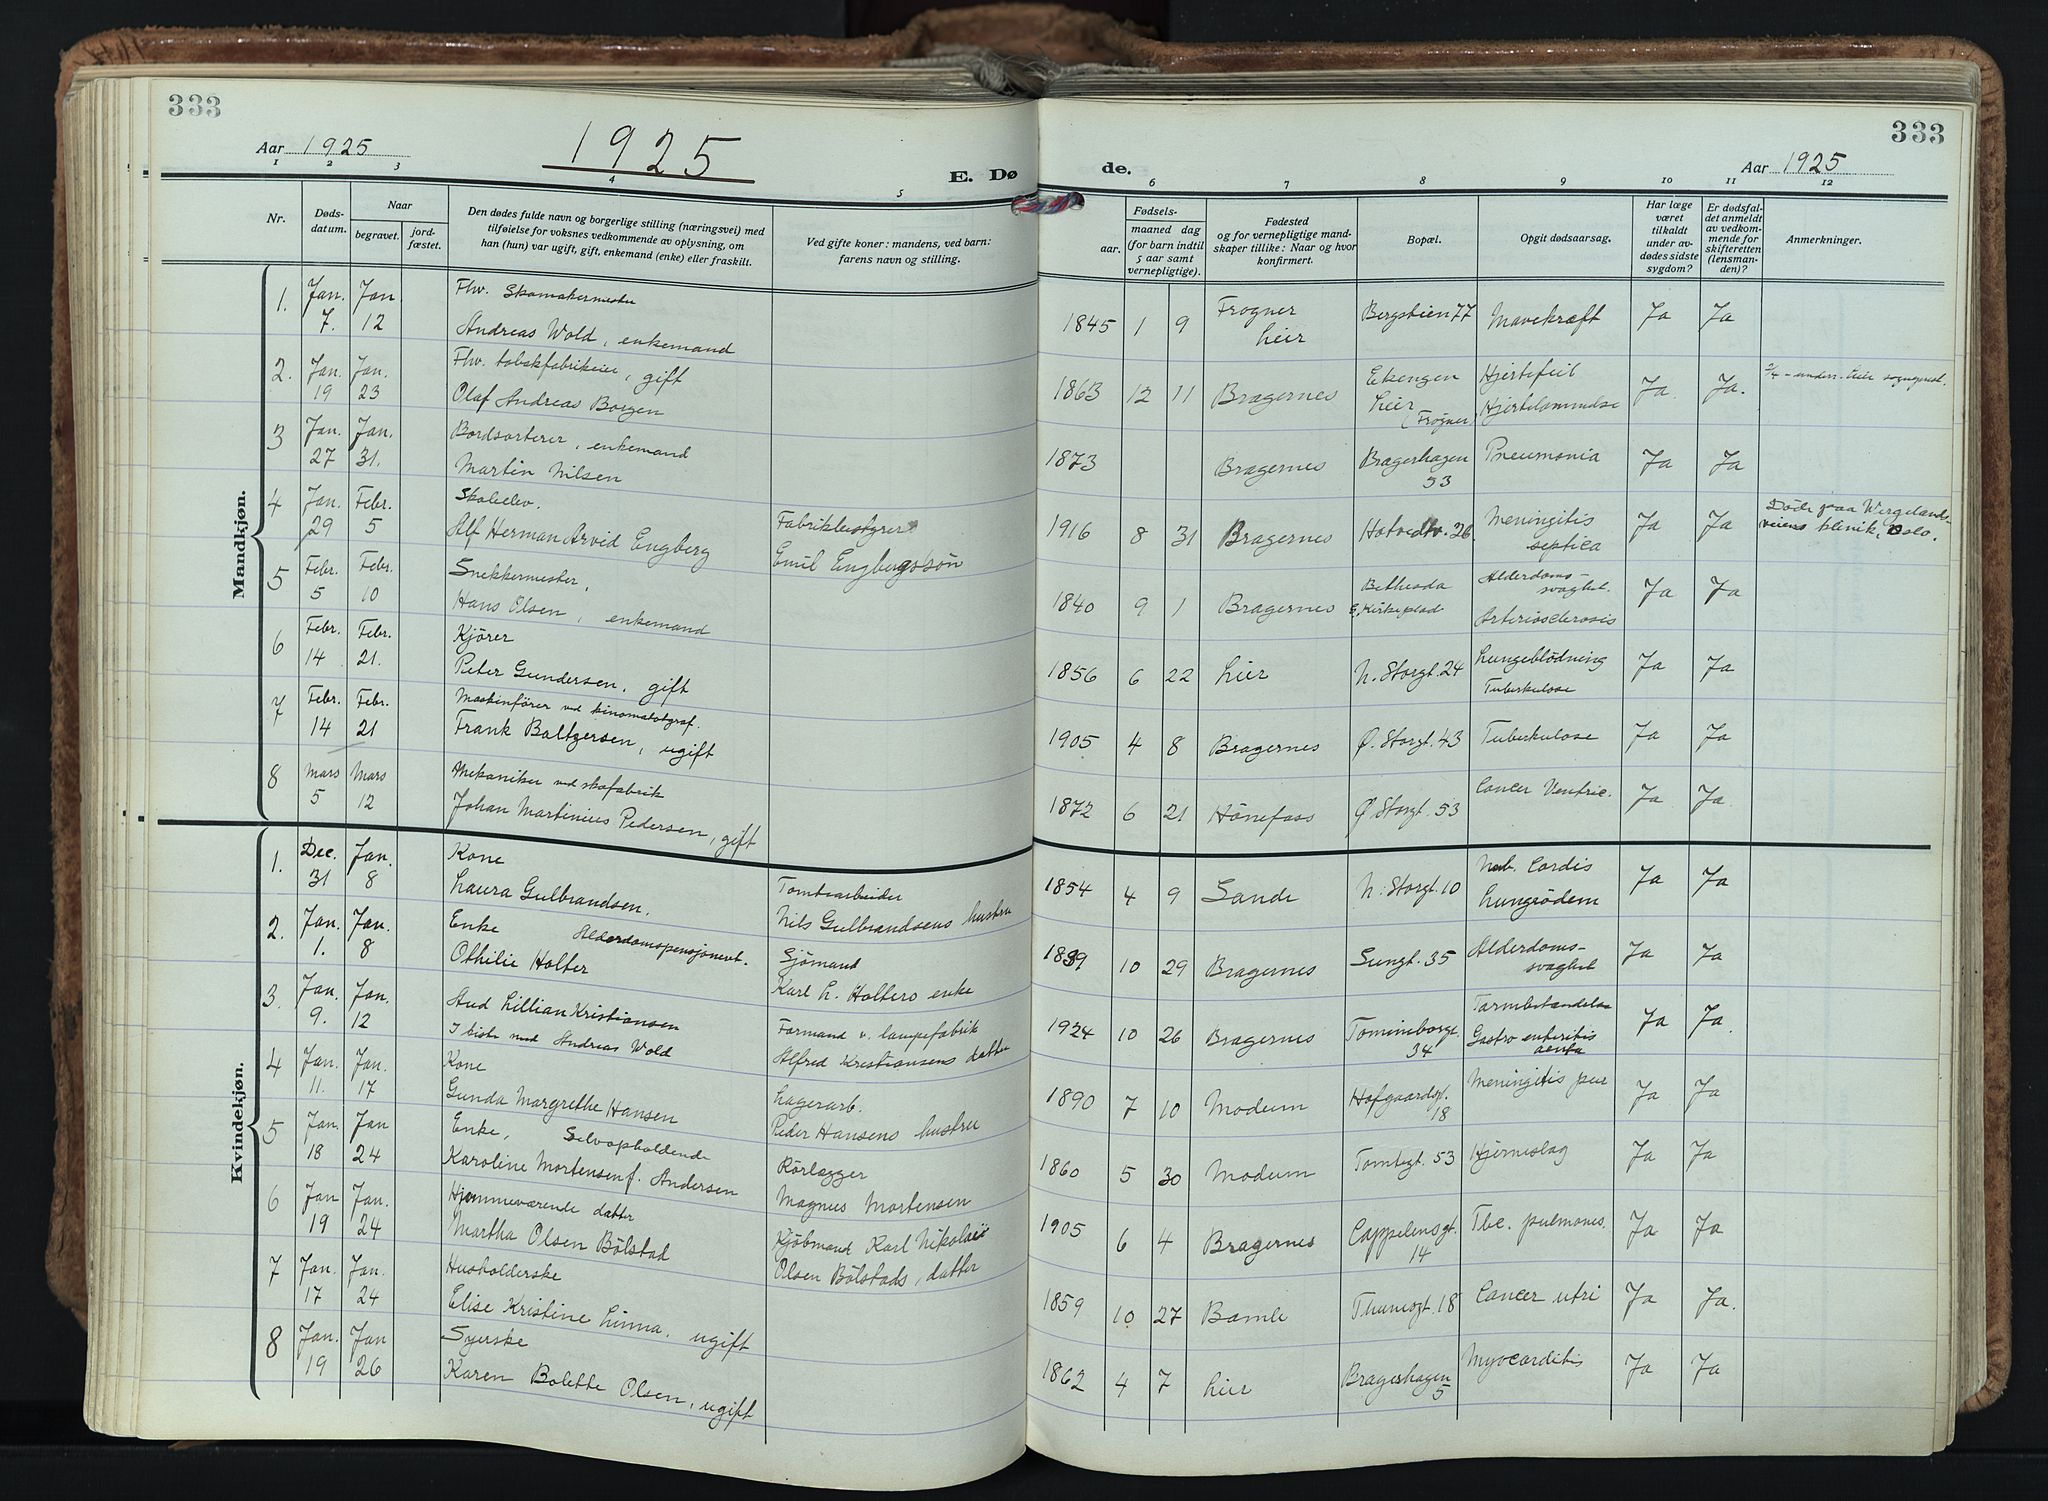 333
Aar 1925
1925
E. Dø
1 2 3 4 5
Nr.
Døds-
datum.
Naar
begravet.
jord-
fæstet.
Den dødes fulde navn og borgerlige stilling (næringsvei) med
tilføielse for voksnes vedkommende av oplysning, om
han (hun) var ugift, gift, enkemand (enke) eller fraskilt.
Ved gifte koner: mandens, ved barn:
farens navn og stilling.
Mandkjøn.
1. Jan. Jan Fhv. Skomakermester
7. 12 Andreas Wold, enkemand
2. Jan. Jan. Fhv. tobakfabrikeier, gift
19 23 Olaf Andreas Borgen
3 Jan. Jan. Bordsorterer, enkemand
27 31. Martin Nilsen
4 Jan. Febr. Skoleelev.
29 5 Alf Herman Arvid Engberg Fabrikbestyrer
Emil Engbergssön
5 Febr. Febr. Snekkermester,
5 10 Hans Olsen, enkemand
6 Febr. Febr. Kjörer
14 21. Peter Gundersen, gift
7 Febr. Febr. Maskinförer ved kinomatograf.
14 21 Frank Baltzersen, ugift
8 Mars Mars Mekaniker ved skofabrik
5 12 Johan Martinius Pedersen, gift
Kvindekjøn.
1. Dec. Jan. Kone
31 8 Laura Gulbrandsen. Tomtearbeider
2. Jan. Jan. Enke Alderdomspensjonert. Nils Gulbrandsens hustru
1. 8 Othilie Holter Sjömand
3. Jan. Jan. Aud Lillian Kristiansen Karl L. Holters enke
9. 12 I kiste med Andreas Wold Formand v. lampefabrik
4 Jan. Jan. Kone Alfred Kristiansens datter
11. 17 Gunda Margrethe Hansen Lagerarb.
5 Jan. Jan Enke, Selvopholdende Peder Hansens hustru
18 24 Karoline Mortensen f. Andersen Rörlegger
6 Jan Jan. Hjemmeværende datter Magnus Mortensen
19 24 Martha Olsen Bölstad Kjöbmand Karl Nikolai
7 Jan. Jan. Husholderske Olsen Bölstads, datter
17 24 Elise Kristine Linna, ugift
8 Jan. Jan Syerske
19 26 Karen Bolette Olsen, ugift
333
de.
Aar 1925
6 7 8 9 10 11 12
Fødsels-
aar.
maaned dag
(for barn indtil
5 aar samt
vernepligtige).
Fødested
og for vernepligtige mand-
skaper tillike: Naar og hvor
konfirmert.
Bopæl.
Opgit dødsaarsag.
Har læge
været
tilkaldt
under av-
dødes sidste
sygdom?
Er dødsfal-
det anmeldt
av vedkom-
mende for
skifteretten
(lensman-
den)?
Anmerkninger.
1845 1 9 Frogner Lier Bergstien 77 Mavekræft Ja Ja
1863 12 11 Bragernes Ekengen Lier (Frogner) Hjertefeil Hjertelammelse Ja Ja.
1873 Bragernes Bragerhagen 53 Pneumonia Ja Ja
1916 8 31 Bragernes Hotvedtv. 26 Meningitis septica Ja Ja Döde paa Wergelands-
veiens klinik, Oslo.
1840 9 1 Bragernes Bethesda Kirkeplad Alderdoms-
svaghet. Arteriosclerosis Ja Ja
1856 6 22 Lier N. Storgt. 24 Lungeblödning Tuberkulose Ja Ja
1905 4 8 Bragernes Ø. Storgt. 43 Tuberkulose Ja Ja
1872 6 21 Hönefoss Ø Storgt. 53 Cancer Ventric. Ja Ja.
1854 4 9 Sande N. Storgt. 10 Cordis Lungeödem Ja Ja
1839 10 29 Bragernes Sungt. 35 Alderdoms-
svaghet Ja Ja
1924 10 26 Bragernes Tomineborgt. 34 Tarmbetændelse Gastro enteritis acuta Ja Ja.
1890 7 10 Modum Hofgaardsgt. 18 Meningitis pur Ja Ja
1860 5 30 Modum Tomtegt. 53 Hjerneslag Ja Ja
1905 6 4 Bragernes Cappelensgt. 14 Tbc. pulmones. Ja Ja
1859 10 27 Bamle Thamsgt. 18 Cancer utri Ja Ja.
1862 4 7 Lier Bragerhagen 5 Myocarditis Ja Ja